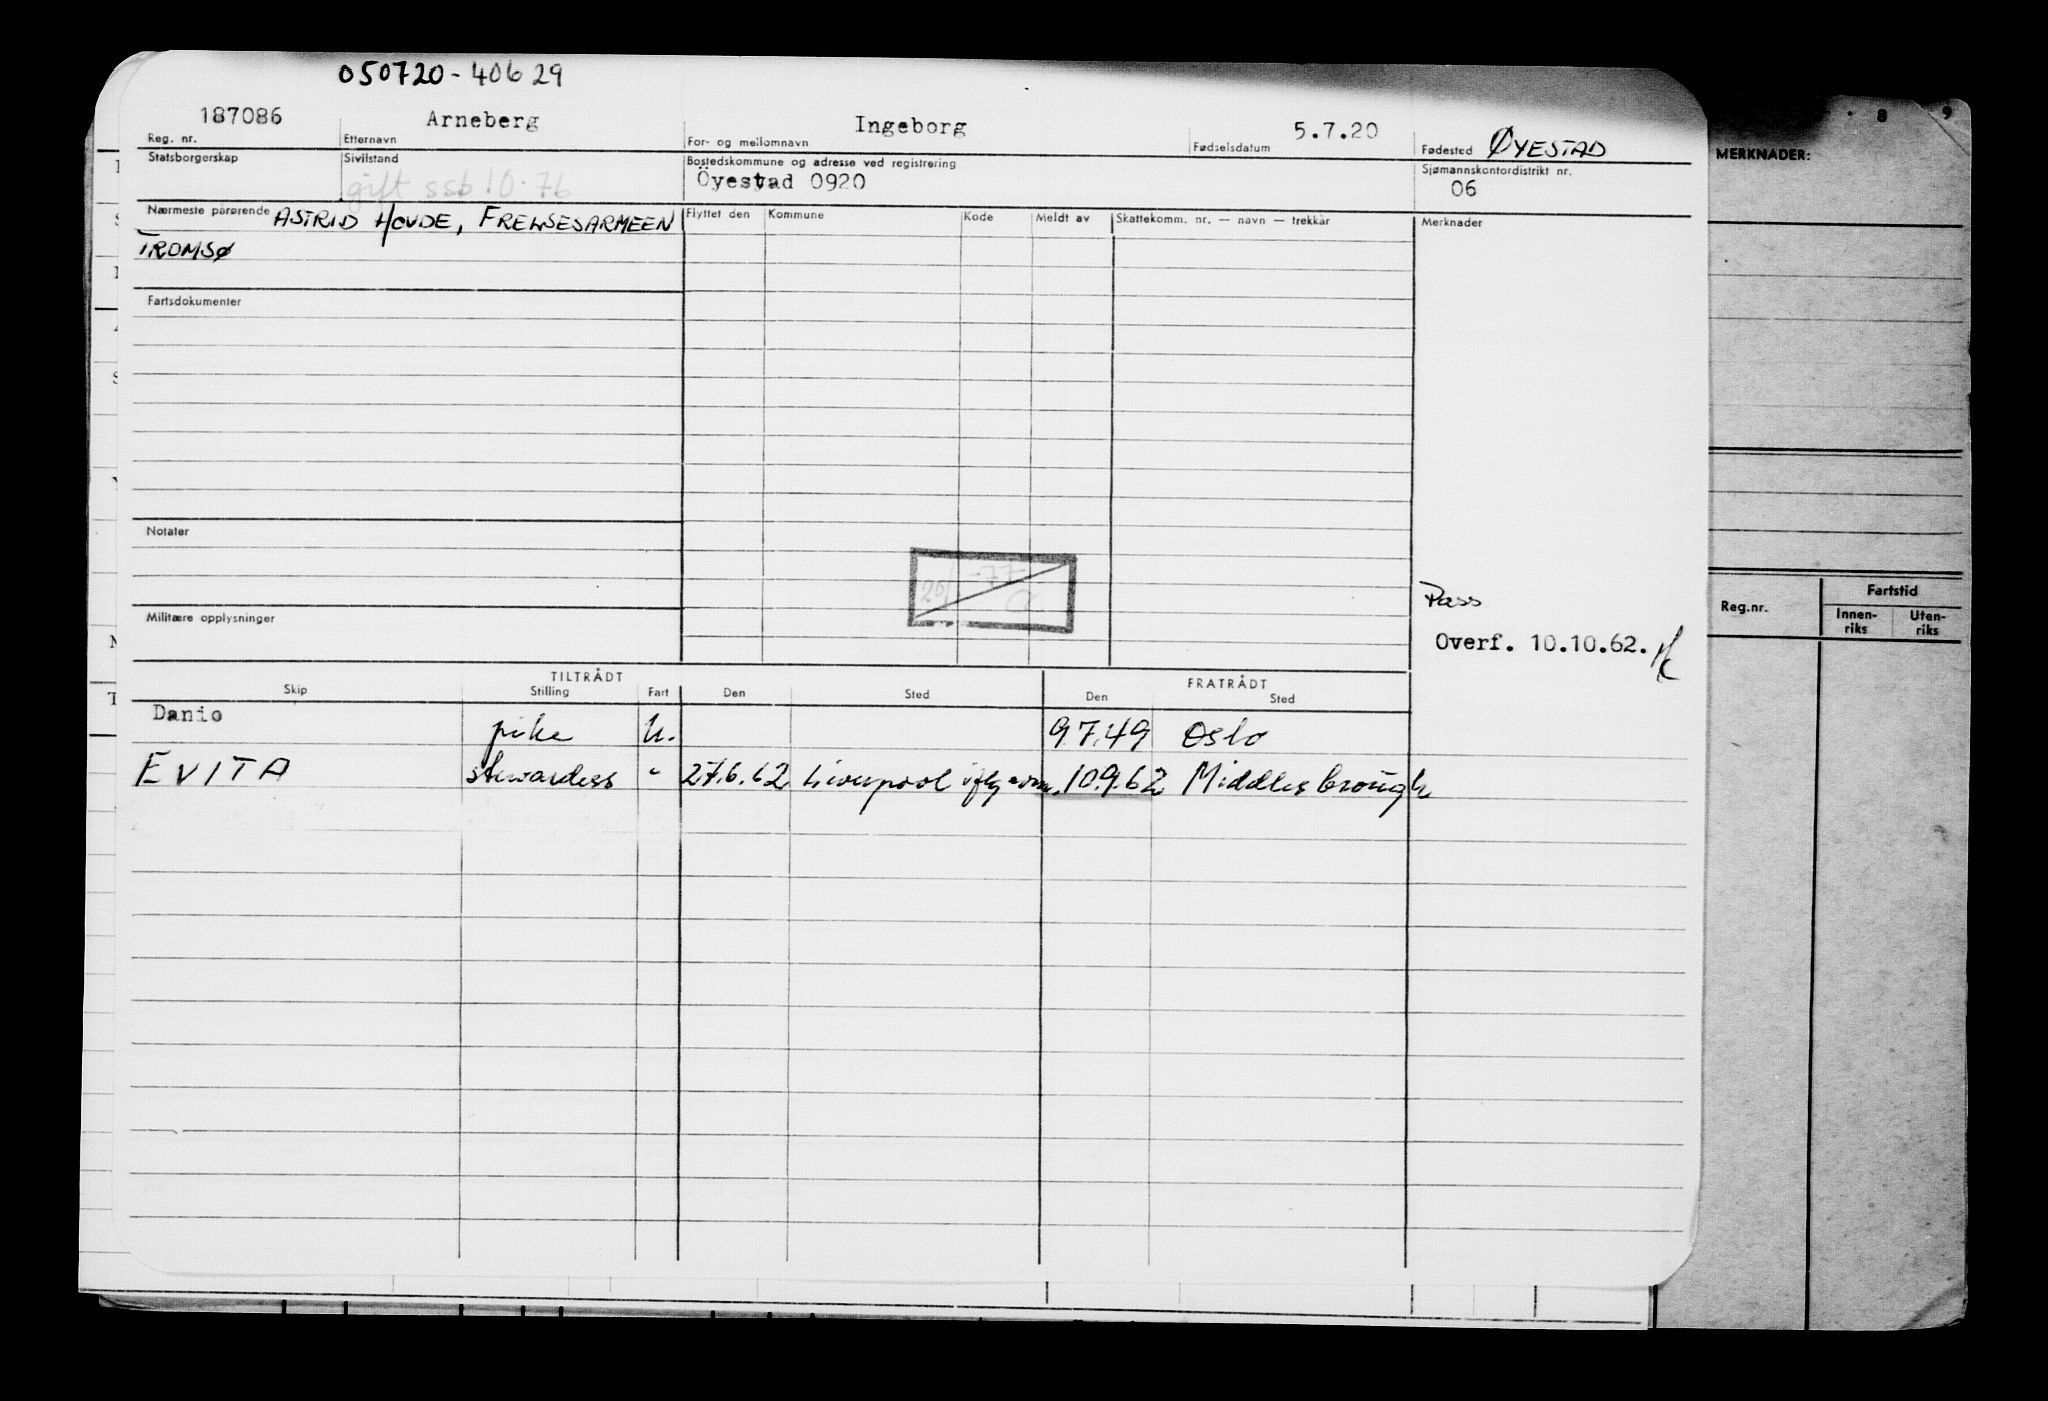 050720-40629
187086 Arneberg Ingeborg 5.7.20 ØYESTAD
Reg. nr. Etternavn For- og mellomnavn Fødselsdatum Fødested
Statsborgerskap Sivilstand Bostedskommune og adresse ved registrering Sjømannskontordistrikt nr.
gift ssb 10.76 Öyestad 0920 06
Nærmeste pårørende ASTRID HOVDE, FRELSESARMEEN Flyttet den Kommune Kode Meldt av Skattekomm. nr. — navn — trekkår Merknader
TROMSØ
Fartsdokumenter
Notater
26/ -77-
Militære opplysninger
Pass
Overf. 10.10.62.
TILTRÅDT FRATRÅDT
Skip Stilling Fart Den Sted Den Sted
Danio pike U. 9.7.49 Oslo
EVITA stewardess " 27.6.62 Liverpool 10.9.62 Middlesbrough
8 9
MERKNADER:
Reg.nr. Fartstid
Innen-riks Uten-riks